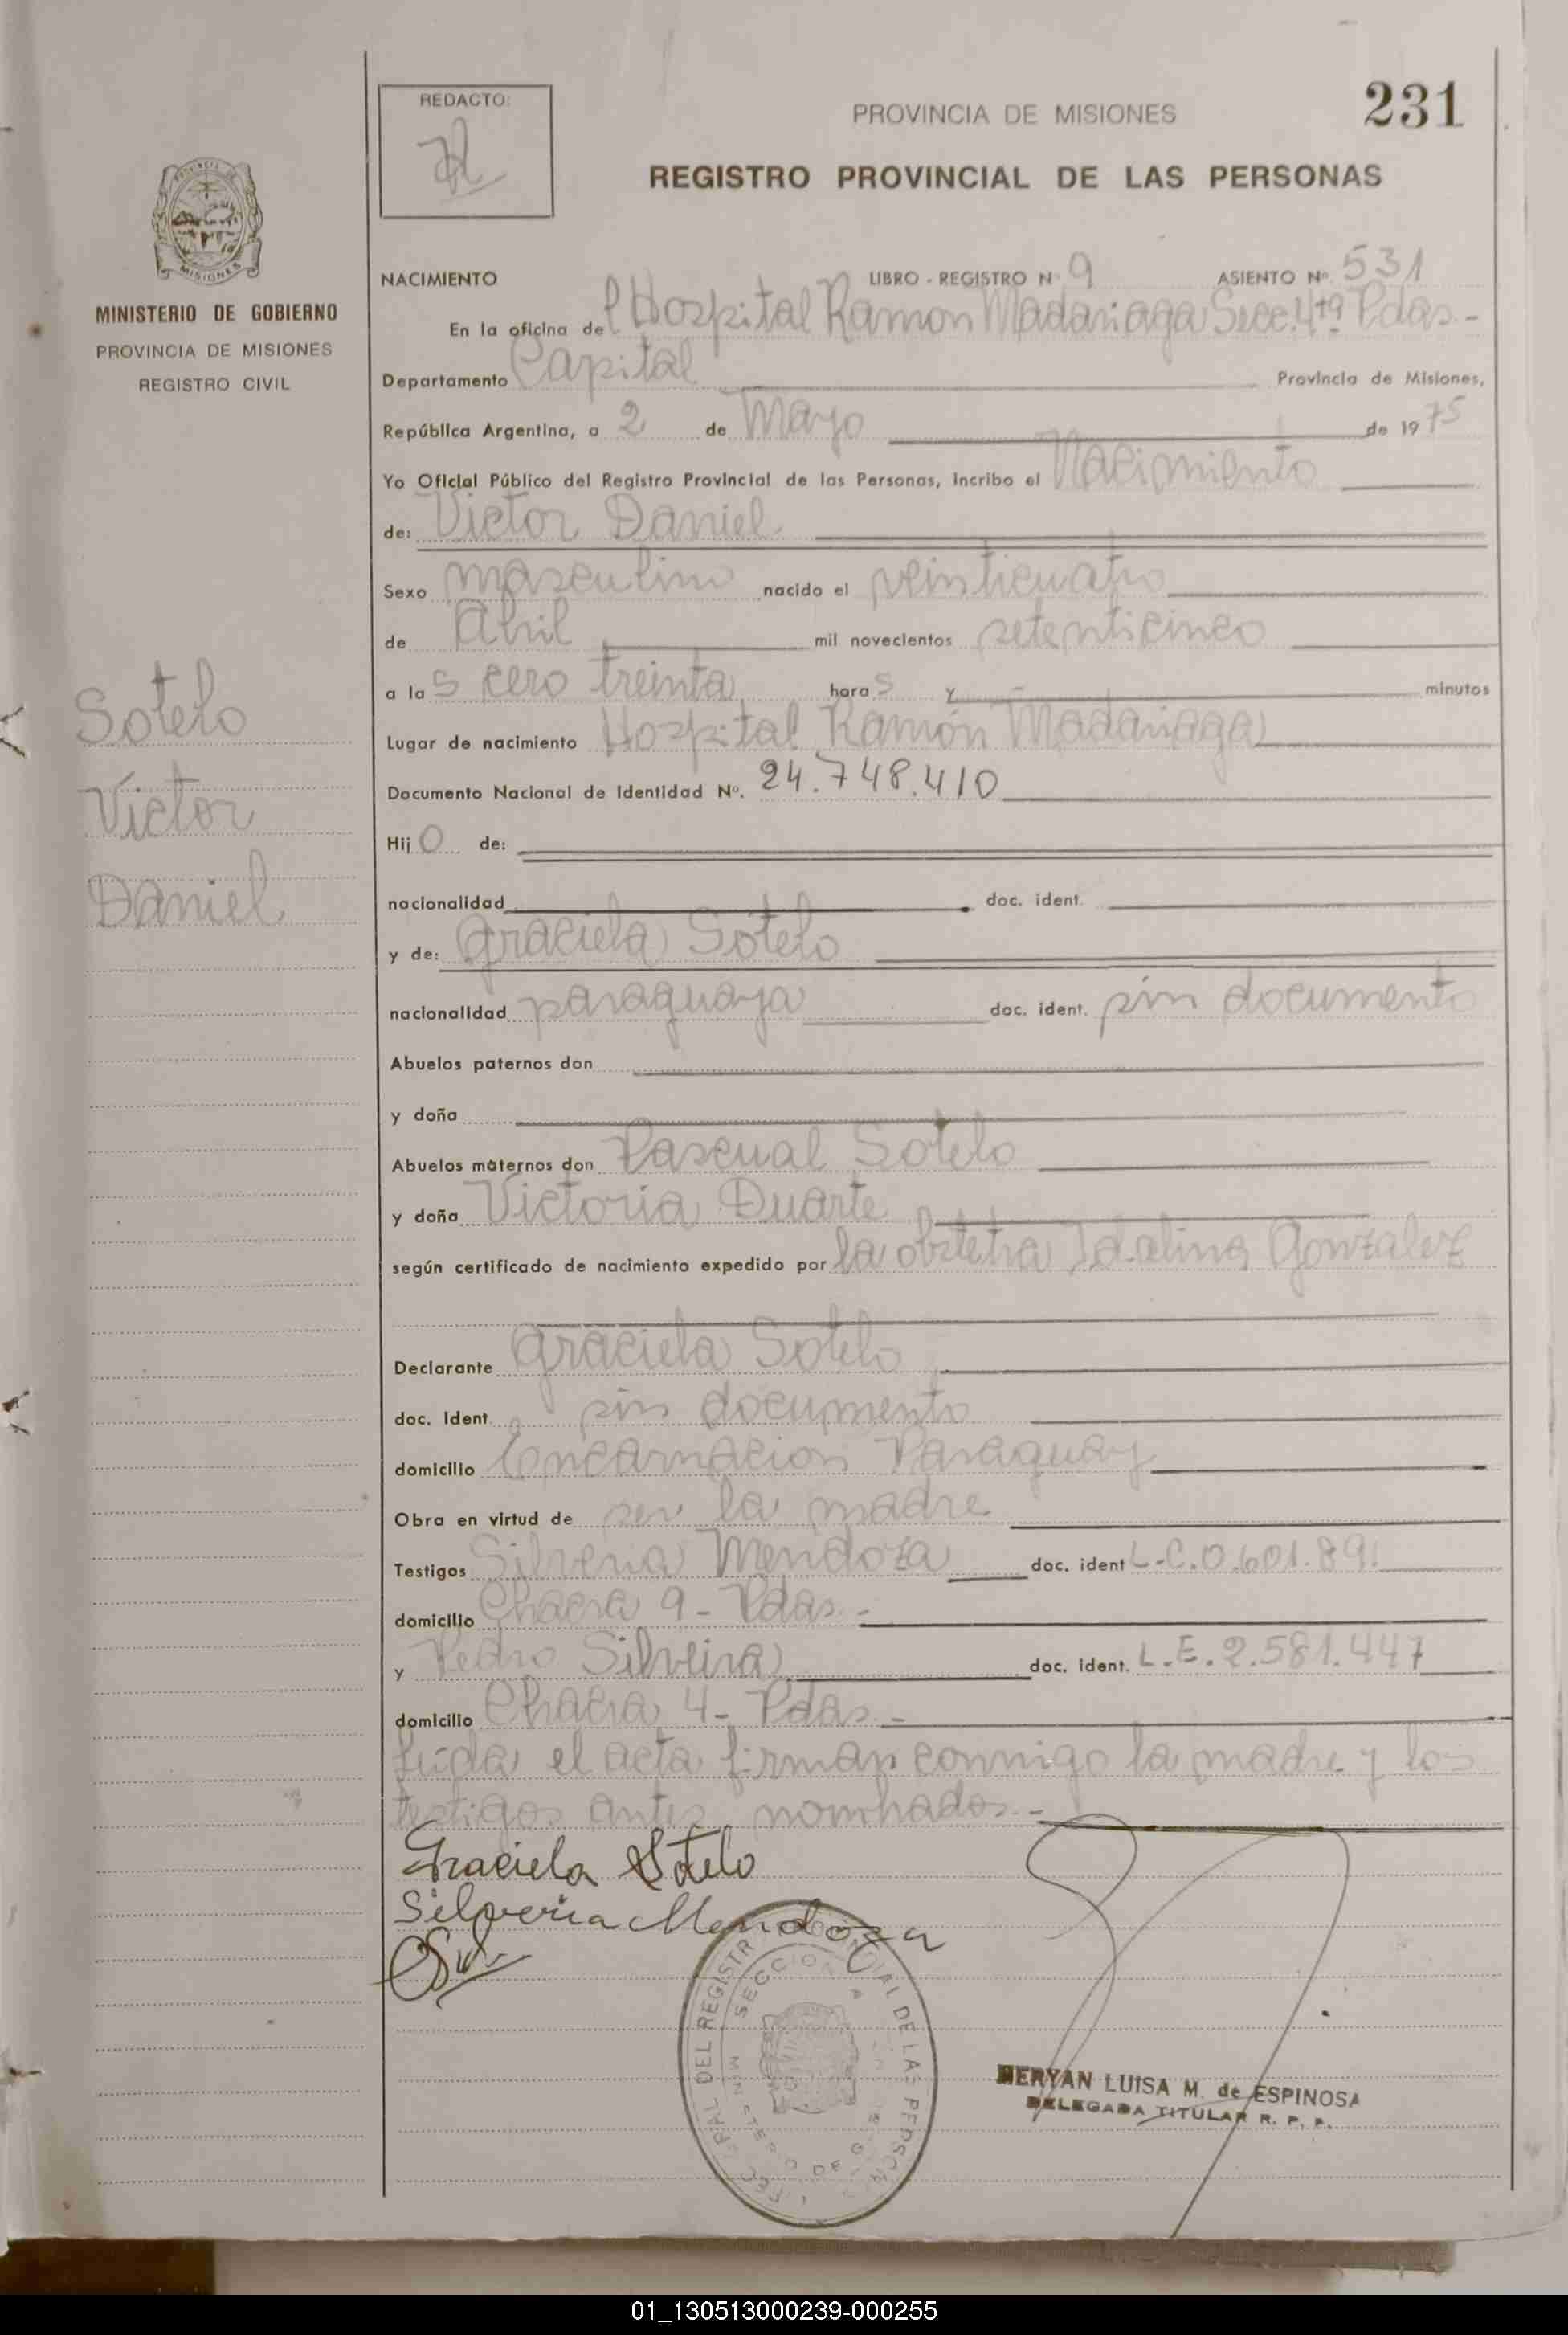 REDACTO:
231
PROVINCIA DE MISIONES
REGISTRO PROVINCIAL DE LAS PERSONAS
MISIONES
MINISTERIO DE GOBIERNO
PROVINCIA DE MISIONES
REGISTRO CIVIL
Sotelo
Victor
Daniel
NACIMIENTO LIBRO - REGISTRO Nº 9 ASIENTO Nº 531
En la oficina del Hospital Ramón Madariaga Secc. 4ta Pdas.-
Departamento Capital Provincia de Misiones,
República Argentina, a 2 de Mayo de 1975
Yo Oficial Público del Registro Provincial de las Personas, incribo el Nacimiento
de: Victor Daniel
Sexo masculino nacido el veinticuatro
de Abril mil novecientos setenticinco
a las cero treinta horas y minutos
Lugar de nacimiento Hospital Ramón Madariaga
Documento Nacional de Identidad Nº. 24.748.410
Hijo de:
nacionalidad doc. ident.
y de: Graciela Sotelo
nacionalidad paraguaya doc. ident. sin documento
Abuelos paternos don
y doña
Abuelos maternos don Pascual Sotelo
y doña Victoria Duarte
según certificado de nacimiento expedido por la obstetra Idalina Gonzalez
Declarante Graciela Sotelo
doc. Ident. sin documento
domicilio Encarnacion Paraguay
Obra en virtud de ser la madre
Testigos Silveria Mendoza doc. ident L.C.0.601.891
domicilio Chacra 9 - Pdas.-
y Pedro Silveira doc. ident. L.E.2.581.447
domicilio Chacra 4- Pdas.-
Leída el acta firman conmigo la madre y los
testigos antes nombrados.-
Graciela Sotelo
Silveria Mendoza
SECCION
MERYAN LUISA M. de ESPINOSA
DELEGADA TITULAR R. P. P.
01_130513000239-000255